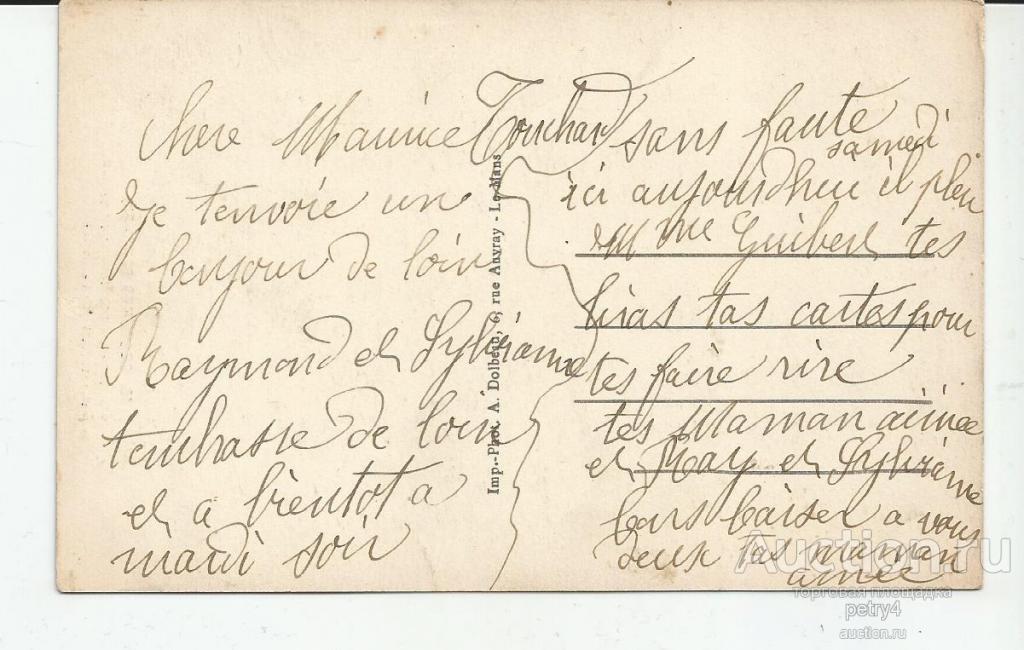 chere Maurice Touchard
Je tenvoie un
bonjour de loin
Raymond et Sylviane
tembrasse de loin
et a bientot a
mardi soir
Imp.-Phot. A. Dolbeau, 6, rue Auvray - Le Mans
sans faute
samedi
ici aujourdheu il pleu
Mme Guibert tes
liras tas cartes pour
tes faire rire
tes Maman aimée
et Ray et Sylviane
bons baiser a vous
deux tas maman
aimée
Auction.ru
торговая площадка
petry4
auction.ru